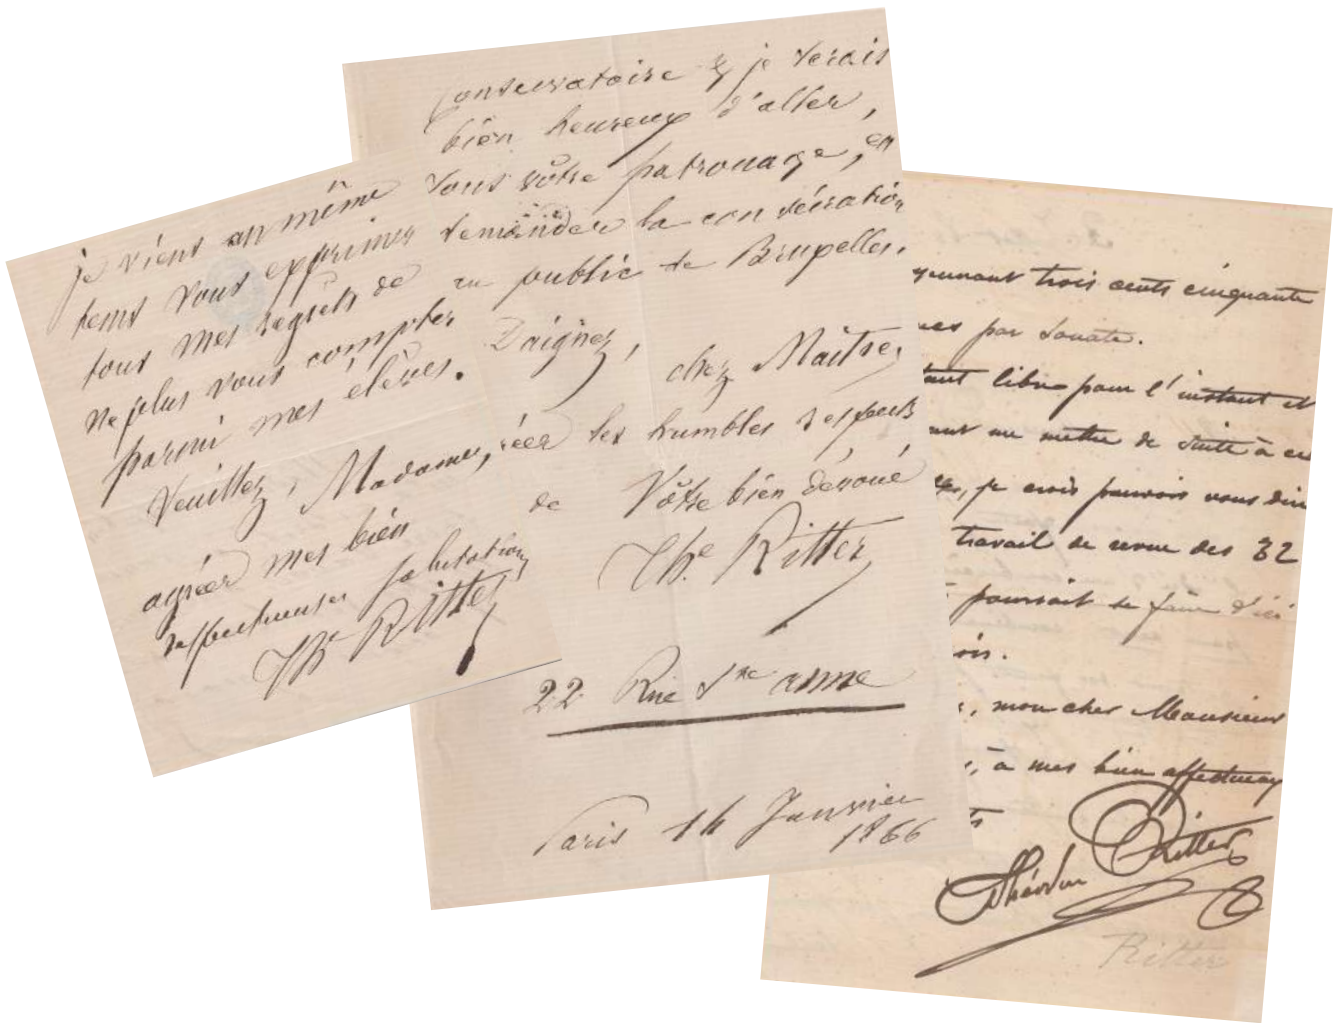 je viens en même
tems vous exprimer
tous mes regrets de
ne plus vous compter
parmi mes élèves.
Veuillez, Madame,
agréer mes bien
respectueuses salutations
Th.e Ritter
Conservatoire & je serais
bien heureux d'aller,
sous vôtre patronage, en
demander la consécration
au public de Bruxelles.
Daignez, cher Maître,
les humbles respects
de Vôtre bien dévoué
Th.e Ritter
22 Rue Ste anne
Paris 14 Janvier
1866
trois cents cinquante
par Sonate.
libre pour l'instant et
me mettre de suite à ce
je crois pouvoir vous dire
travail de revue des 32
pourrait se faire d'ici
mon cher Monsieur
à mes bien affectueux
Théodore Ritter
Ritter